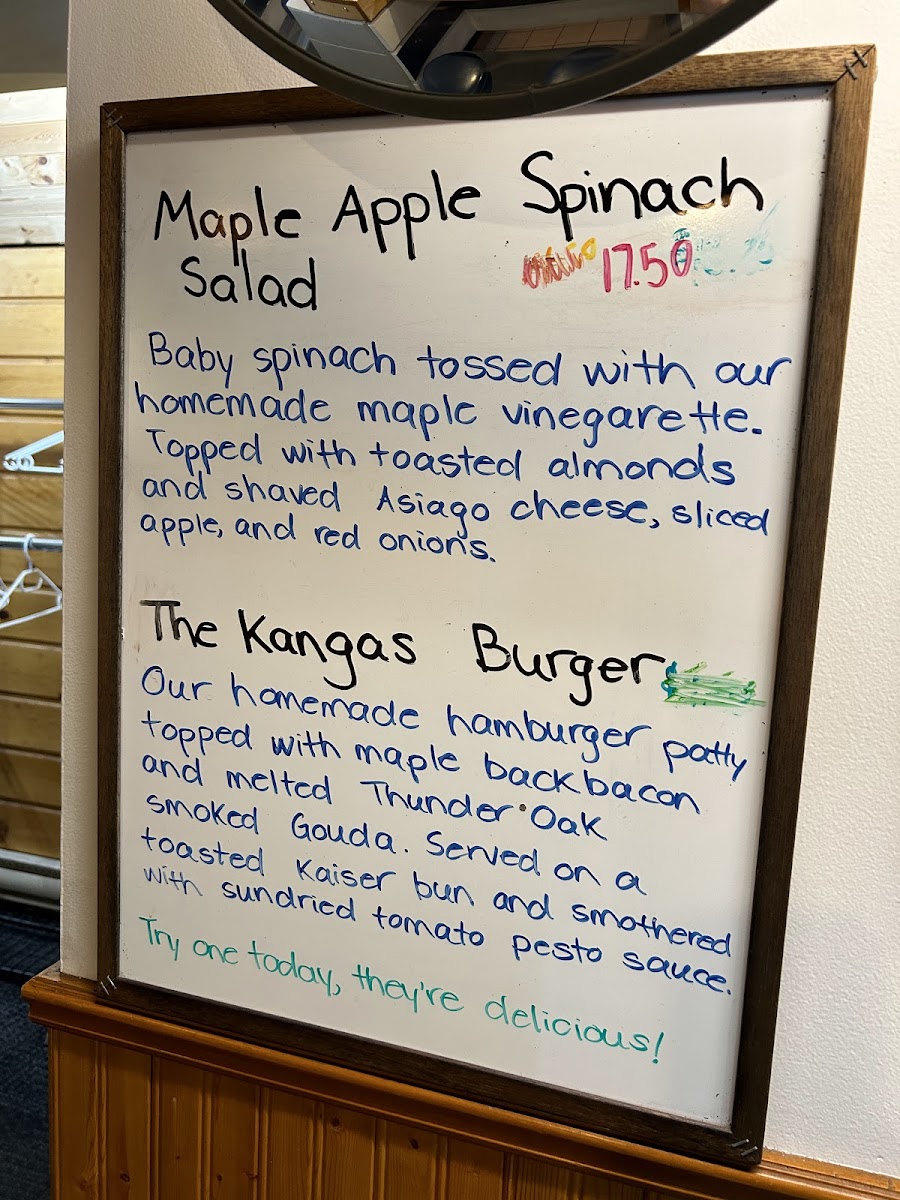 Maple Apple Spinach
Salad 17.50
Baby spinach tossed with our
homemade maple vinegarette.
Topped with toasted almonds
and shaved Asiago cheese, sliced
apple, and red onions.
The Kangas Burger
Our homemade hamburger patty
topped with maple backbacon
and melted Thunder Oak
smoked Gouda. Served on a
toasted Kaiser bun and smothered
with sundried tomato pesto sauce.
Try one today, they're delicious!